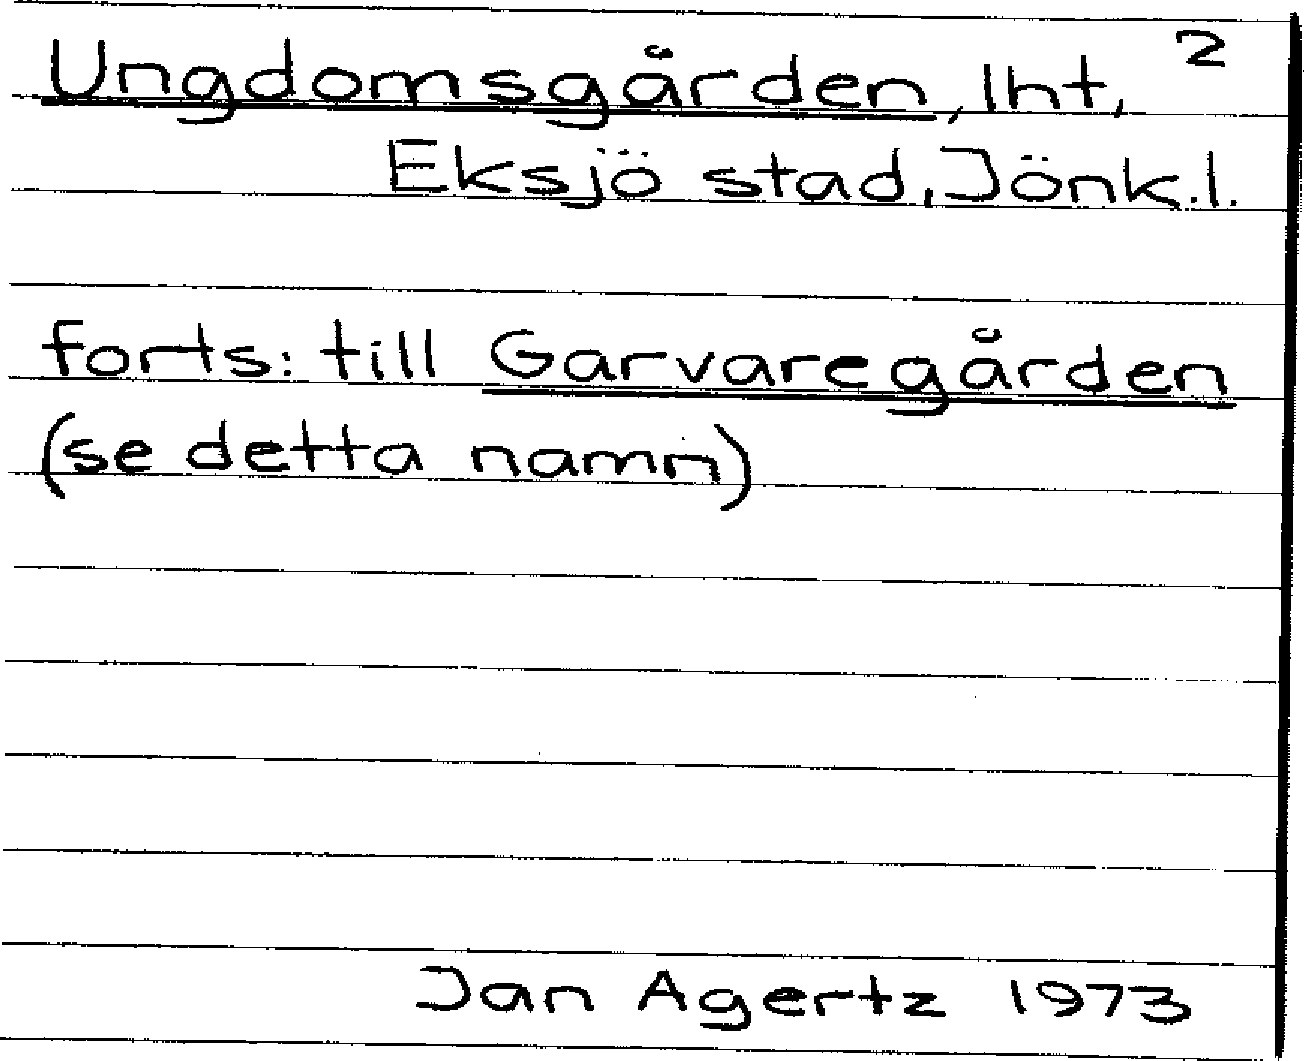 2
Ungdomsgården, lht,
Eksjö stad, Jönk.l.
forts: till Garvaregården
(se detta namn)
Jan Agertz 1973